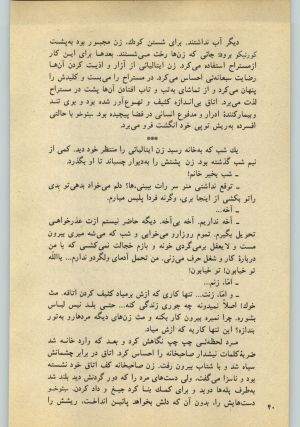 دیگر آب نداشتند. برای شستن کودك، زن مجبور بود به‌پشت
کورنیکو برود؛ جائی که زن‌ها رخت می‌شستند. بعدها برای این کار
ازمستراح استفاده می‌کرد. زن ایتالیائی از آزار و اذیت کردن آن‌ها
رضایت سبعانه‌ئی احساس می‌کرد. در مستراح را می‌بست و کلیدش را
پنهان می‌کرد و از تماشای به‌تب و تاب افتادن آن‌ها پشت در مستراح
لذت می‌برد. اتاق بی‌اندازه کثیف و تهوع‌آور شده بود و بوی تند
وبیمارکنندهٔ ادرار و مدفوع انسانی در فضا پیچیده بود. میتوخو با حالتی
افسرده به‌ریش توپی خود انگشت فرو می‌برد.
***
یك شب که به‌خانه رسید زن ایتالیائی را منتظر خود دید. کمی از
نیم شب گذشته بود. زن پشتش را به‌دیوار چسباند تا او بگذرد.
ـ شب بخیر خانم!
ـ توقع نداشتی منو سر رات ببینی،ها؟ دلم می‌خواد بدهی‌تو یدی
راتو بکشی از اینجا بری، وگرنه فردا پلیس میارم.
ـ آخه...
ـ آخه نداریم. آخه بی‌آخه. دیگه حاضر نیستم ازت عذرخواهی
تحویل بگیرم. تموم روزارو می‌خوابی و شب که می‌شه میری بیرون
مست و لایعقل برمی‌گردی خونه و بازم خجالت نمی‌کشی که با من
دربارهٔ کار و شغل حرف می‌زنی. من تحمل آدمای ولگردو ندارم... یاالله
تو خیابون! تو خیابون!
ـ امّا، زنم...
ـ و امّا، زنت... تنها کاری که ازش برمیاد کثیف کردن اتاقه. مث
خوك! اصلاً نمیدونه چه جوری زندگی کنه... حتــی بلد نیس لباس
بشوره. چرا نمیره بیرون کار بکنه و مث زن‌های دیگه مردهارو به‌تور
بندازه؟ این تنها کاریه که ازش میاد.
مرد لحظه‌ئی چپ چپ نگاهش کرد و بعد که وارد خانه شد
ضربهٔ کلمات نیشدار صاحبخانه را احساس کرد. اتاق در برابر چشمانش
سیاه شد و با شتاب بیرون رفت. زن صاحبخانه کف اتاق خود نشسته
بود و ناسزا می‌گفت، ولی دست‌های مرد را که دور گردنش دید بلند شد
به‌طرف پله‌ها دوید و برای کمك بنا کرد جیــغ و داد کردن. میتوخو
دست‌هایش را، بدون آن که دلش بخواهد پائیــن انداخت، ریشش را
۴۰